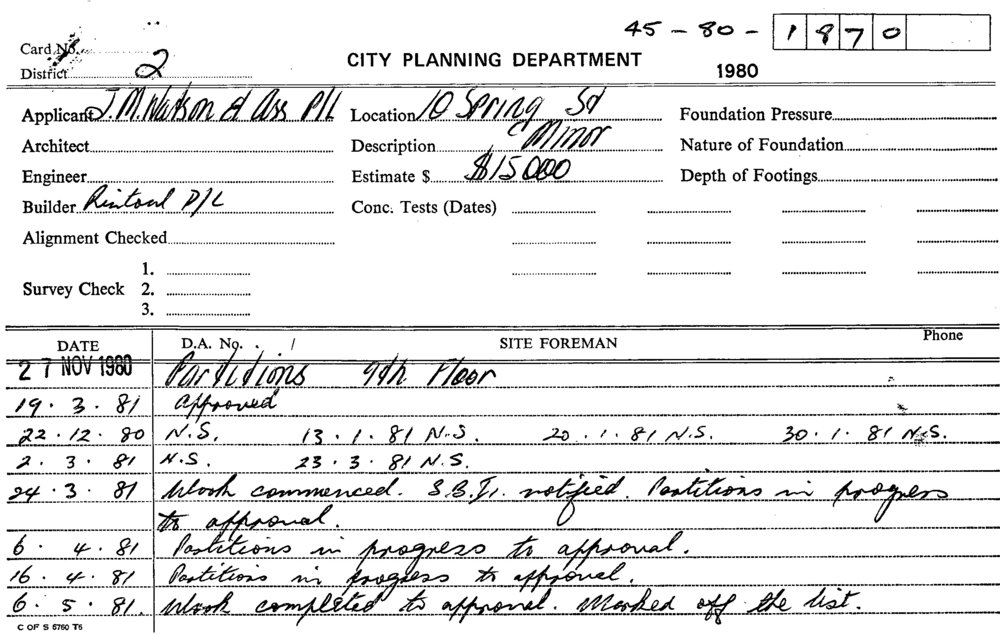 45 - 80 - 1870
Card No.
District 2
CITY PLANNING DEPARTMENT
1980
Applicant J. M. Watson & Ass P/L Location 10 Spring St Foundation Pressure
Architect Description Minor Nature of Foundation
Engineer Estimate $ $15000 Depth of Footings
Builder Rintoul P/L Conc. Tests (Dates)
Alignment Checked
1.
Survey Check 2.
3.
DATE D.A. No. SITE FOREMAN Phone
27 NOV 1980 Partitions 9th Floor
19 . 3 . 81 Approved
22 . 12 . 80 N.S. 13 . 1 . 81 N.S. 20 . 1 . 81 N.S. 30 . 1 . 81 N.S.
2 . 3 . 81 N.S. 23 . 3 . 81 N.S.
24 . 3 . 81 Work commenced. S.B.I. notified. Partitions in progress
to approval.
6 . 4 . 81 Partitions in progress to approval.
16 . 4 . 81 Partitions in progress to approval.
6 . 5 . 81. Work completed to approval. Marked off the list.
C OF S 5760 T6